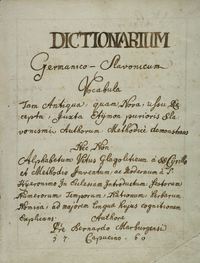 DICTIONARIUM
Germanico-Slavonicum
Vocabula
Tam Antiqua, quam Nova, usu Re
cepta, Juxta Etymon purioris Sla
vonismi, Authorum Methodice demonstrans
Nec Non
Alphabetum Vetus Glagoliticum à SS Cyrillo
et Methodio Inventum, ac
Hieronimo in Eclesiam Introductum, Festorum
Numerorum Temporum, Nationum, Verborum
ad majorem Linguæ hujus cognitionem
Explicans
Authore
Pre Bernardo Marburgensi
Capucino